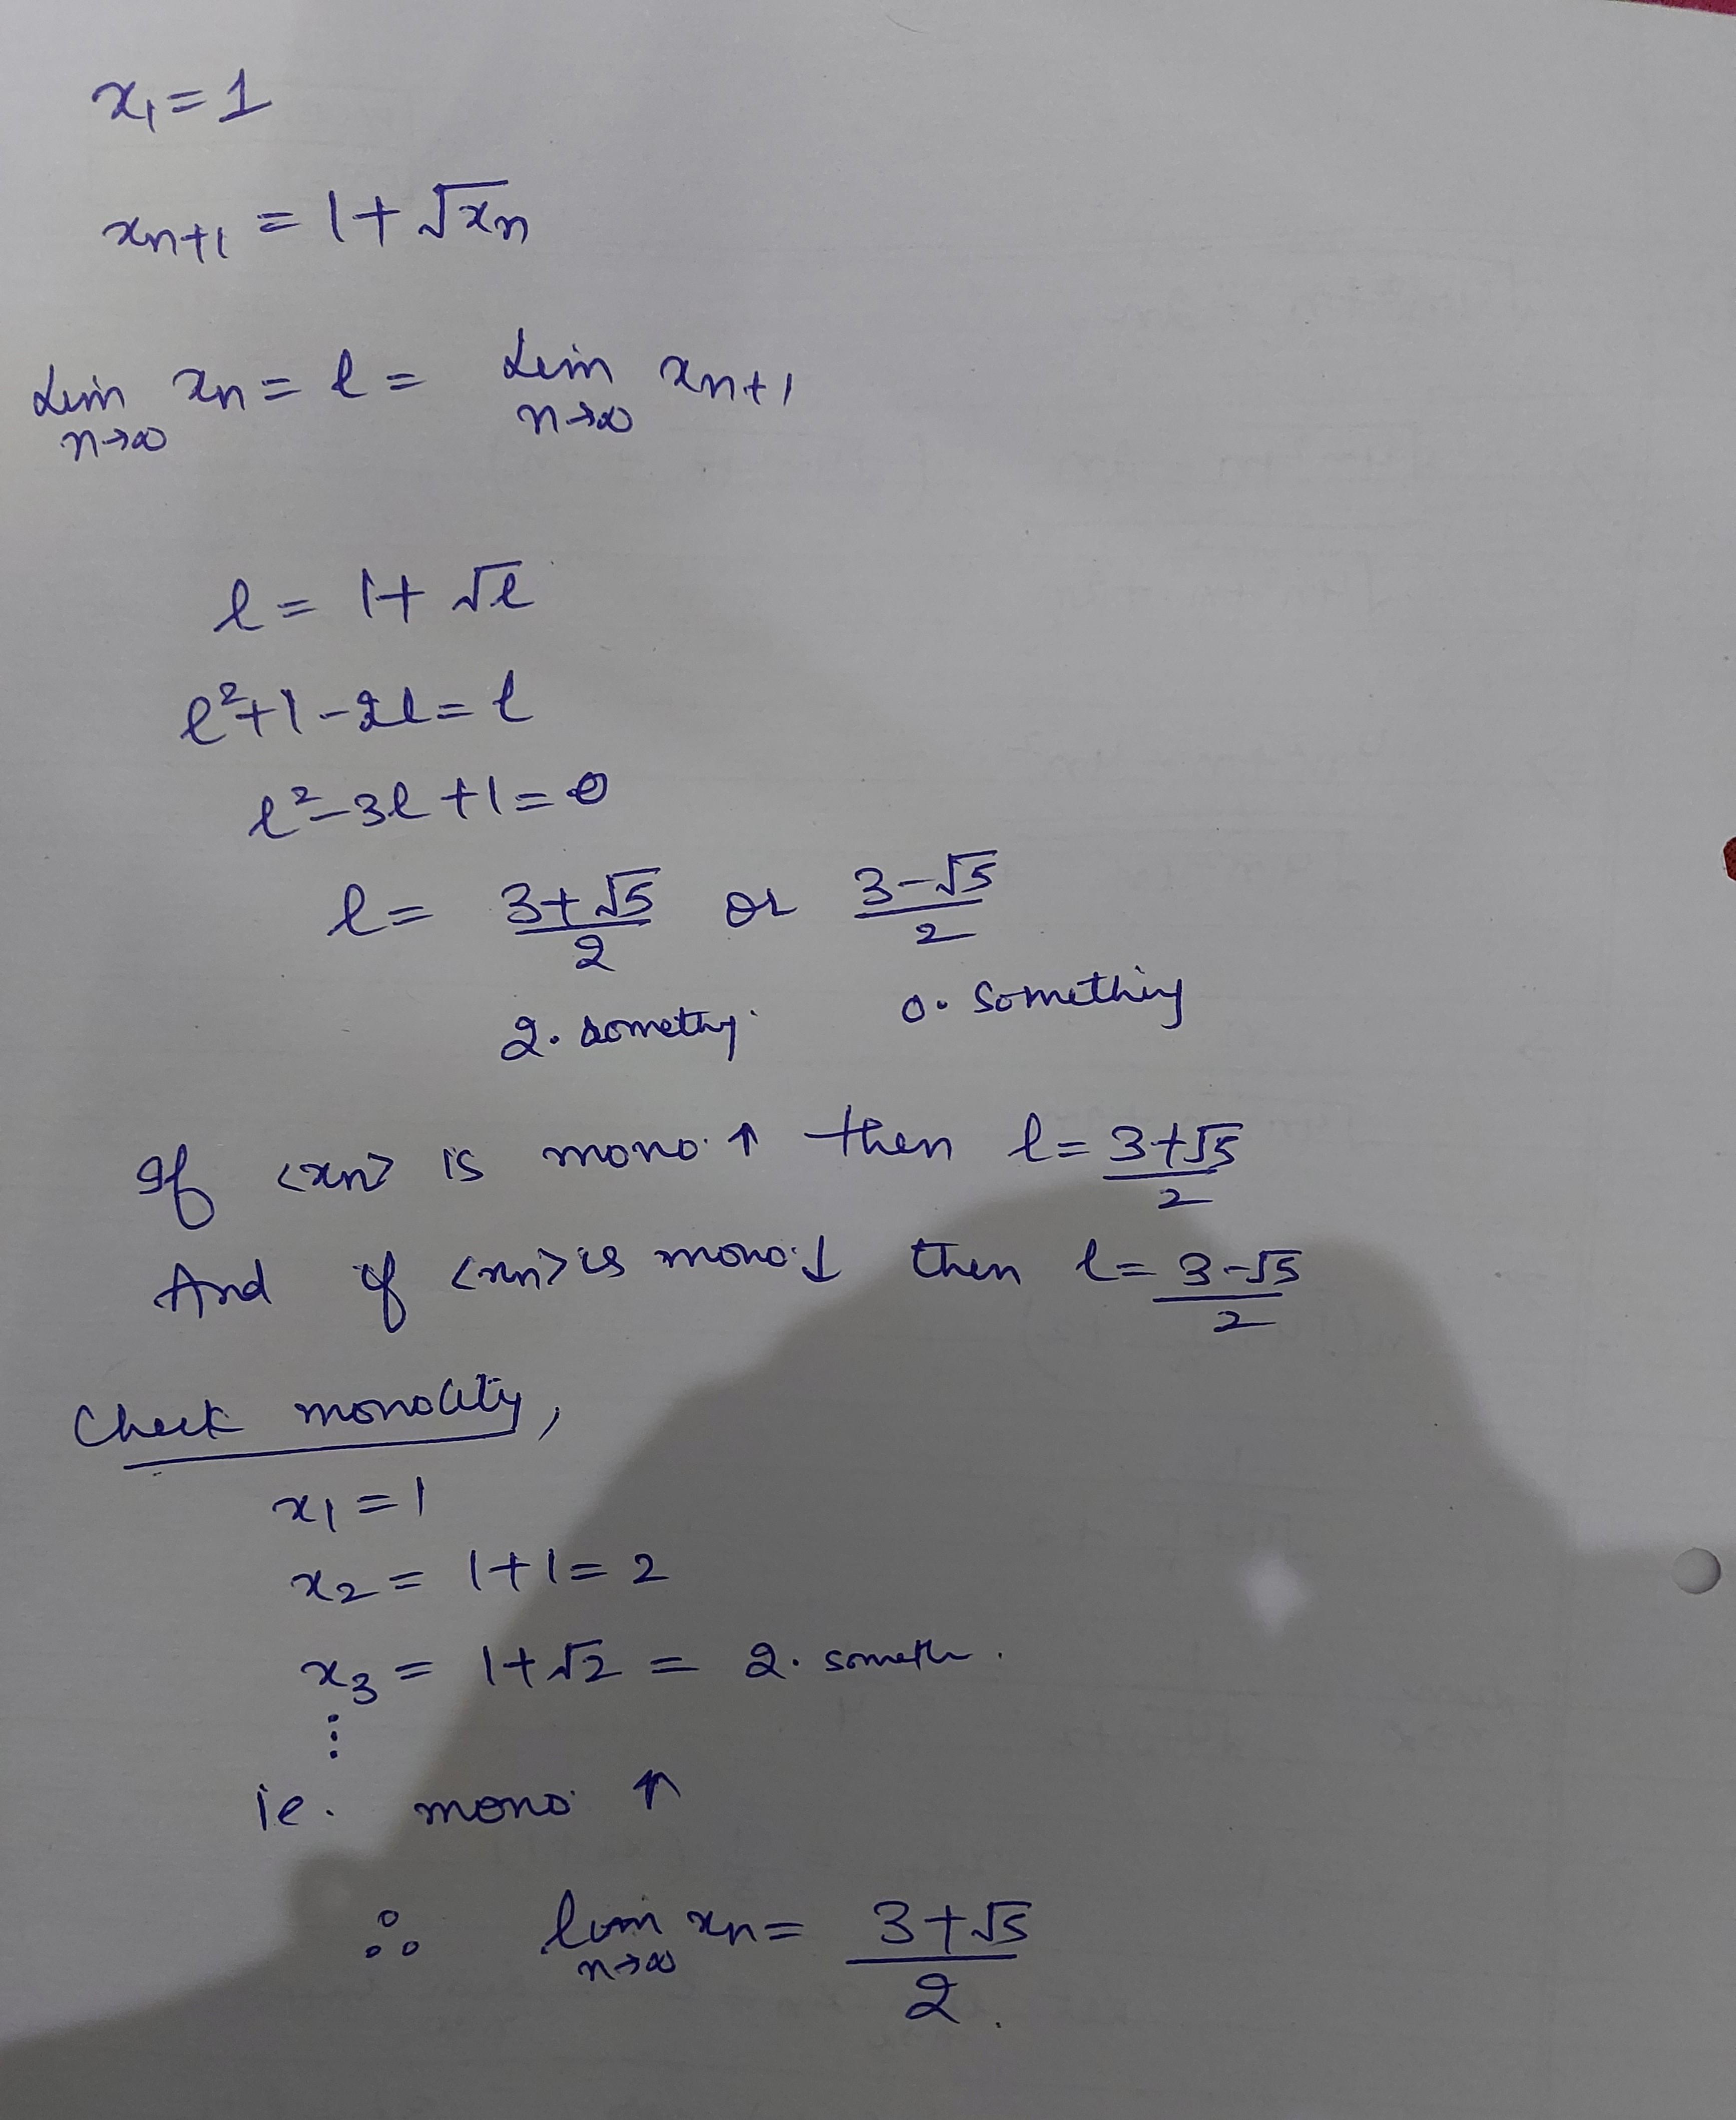 x₁ = 1
xn+1 = 1 + √xn
Lim n→∞ xn = l = Lim n→∞ xn+1
l = 1 + √l
l² + 1 - 2l = l
l² - 3l + 1 = 0
l = 3+√5/2 or 3-√5/2
2. somethg. 0. something
If <xn> is mono. ↑ then l = 3+√5/2
And if <xn> is mono. ↓ then l = 3-√5/2
Check monocity,
x₁ = 1
x₂ = 1+1 = 2
x₃ = 1+√2 = 2. someth.
⋮
ie. mono ↑
∴ lim n→∞ xn = 3+√5/2.